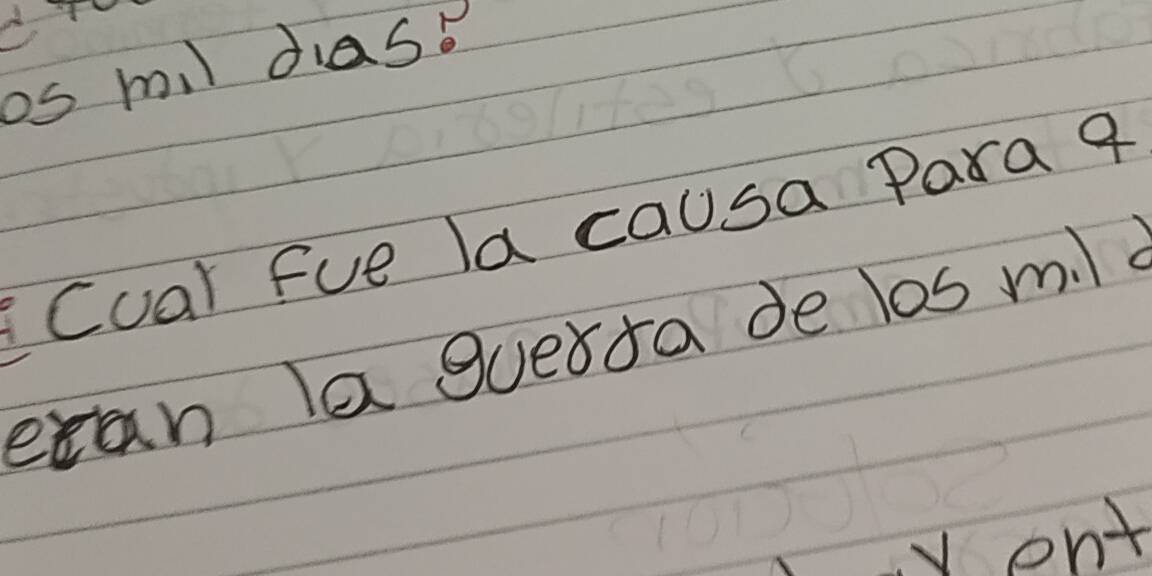 os mil dias?
¿Cual fue la causa Para q
eran la guerra de los mil d
y ent